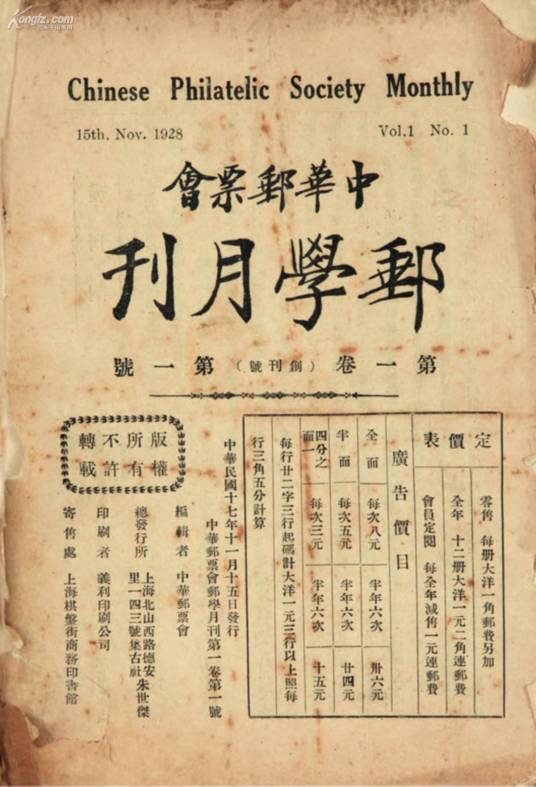 Kongfz.com
Chinese Philatelic Society Monthly
15th. Nov. 1928
Vol.1 No. 1
中華郵票會
郵學月刊
第一卷（創刊號）第一號
定價表
零售 每册大洋一角郵費另加
全年 十二册大洋一元二角連郵費
會員定閱 每全年減售一元連郵費
廣告價目
全面 每次八元 半年六次 卅六元
半面 每次五元 半年六次 廿四元
四分之一面 每次三元 半年六次 十五元
每行廿二字三行起碼計大洋一元三行以上照每
行三角五分計算
版權所有不許轉載
中華民國十七年十一月十五日發行
中華郵票會郵學月刊第一卷第一號
編輯者 中華郵票會
總發行所 上海北山西路德安里一四三號集古社朱世傑
印刷者 義利印刷公司
寄售處 上海棋盤街商務印書館